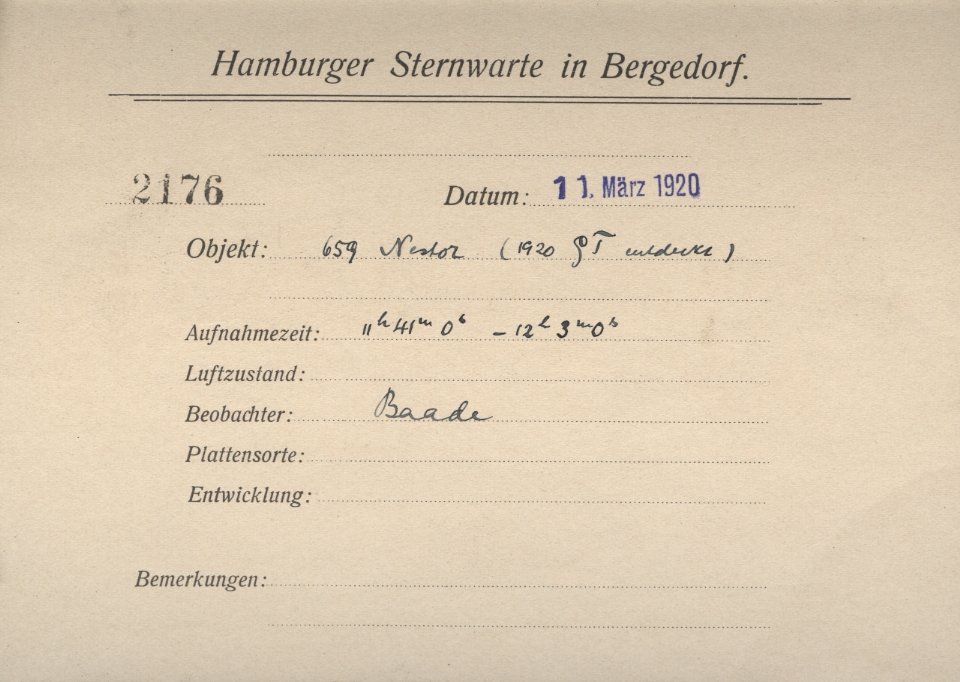 Hamburger Sternwarte in Bergedorf.
2176 Datum: 11. März 1920
Objekt: 659 Nestor (1920 T entdeckt)
Aufnahmezeit: 11h 41m 0s – 12h 3m 0s
Luftzustand:
Beobachter: Baade
Plattensorte:
Entwicklung:
Bemerkungen: